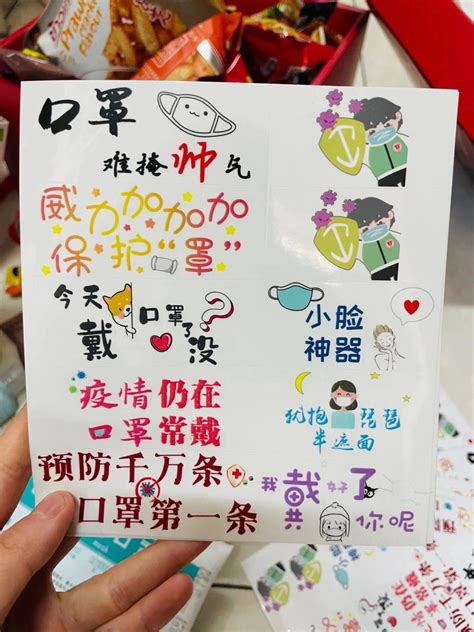 口罩
难掩帅气
威力加加加
保护“罩”
今天
戴口罩了没?
小脸
神器
疫情仍在
口罩常戴
犹抱琵琶
半遮面
预防千万条
口罩第一条
我戴好了
你呢